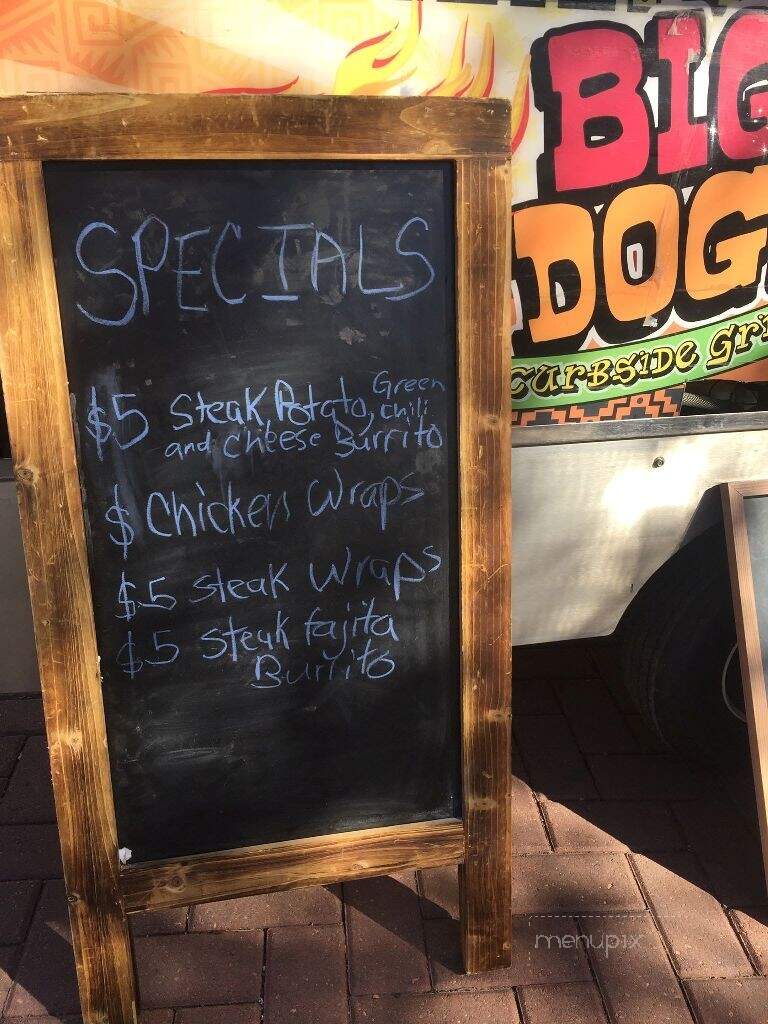 SPECIALS
$5 Steak Potato, Green Chili
and cheese Burrito
$ Chicken Wraps
$5 Steak Wraps
$5 Steak fajita
Burrito
BIG
DOG
CURBSIDE Gri
menupix